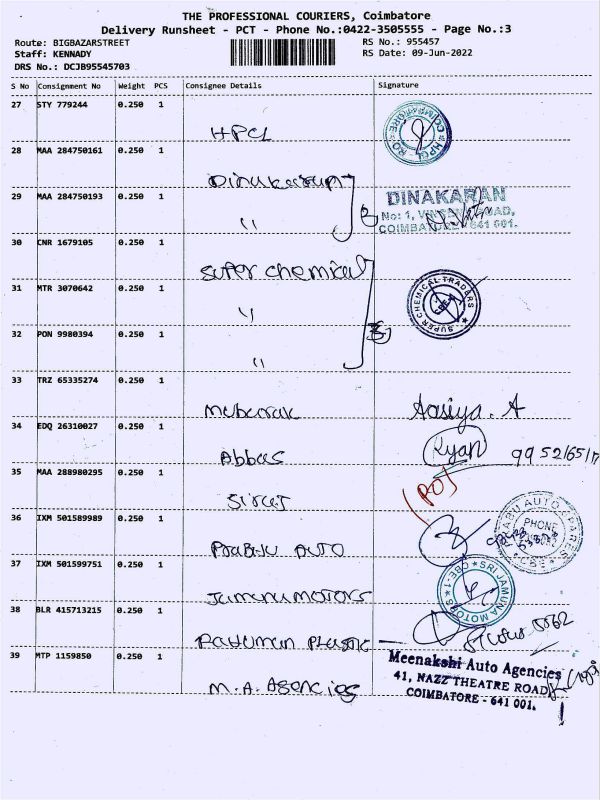 THE PROFESSIONAL COURIERS, Coimbatore
Delivery Runsheet - PCT - Phone No.:0422-3505555 - Page No.:3
Route: BIGBAZARSTREET RS No.: 955457
Staff: KENNADY RS Date: 09-Jun-2022
DRS No.: DCJB95545703
S No Consignment No Weight PCS Consignee Details Signature
27 STY 779244 0.250 1
HPCL
28 MAA 284750161 0.250 1
Dinakaran
29 MAA 284750193 0.250 1
"
DINAKARAN
No: 1,
COIMBATORE - 641 001.
30 CNR 1679105 0.250 1
super chemical
31 MTR 3070642 0.250 1
"
SUPER CHEMICAL TRADERS
32 PON 9980394 0.250 1
"
33 TRZ 65335274 0.250 1
Mubarak Aasiya. A
34 EDQ 26310027 0.250 1
Abbas Ryan
35 MAA 288980295 0.250 1
36 IXM 501589989 0.250 1
Prabhu Auto
PRABHU AUTO SPARES
PHONE
CBE
37 IXM 501599751 0.250 1
Jamuna motors
SRI JAMUNA MOTORS
CBE-1
38 BLR 415713215 0.250 1
Plastic
39 MTP 1159850 0.250 1
M.A. Agencies
Meenakshi Auto Agencies
41, NAZZ THEATRE ROAD
COIMBATORE - 641 001.